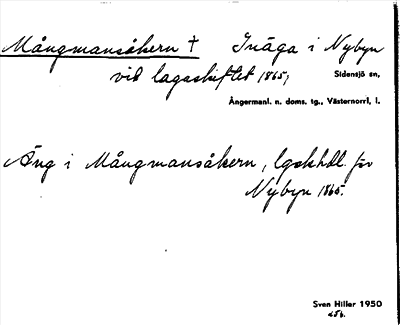 Mångmansåkern † Inäga i Nybyn
vid lagaskiftet 1865,
Sidensjö sn,
Ångermanl. n. doms. tg., Västernorrl, l.
Äng i Mångmansåkern, lgskhdl. för
Nybyn 1865.
Sven Hiller 1950